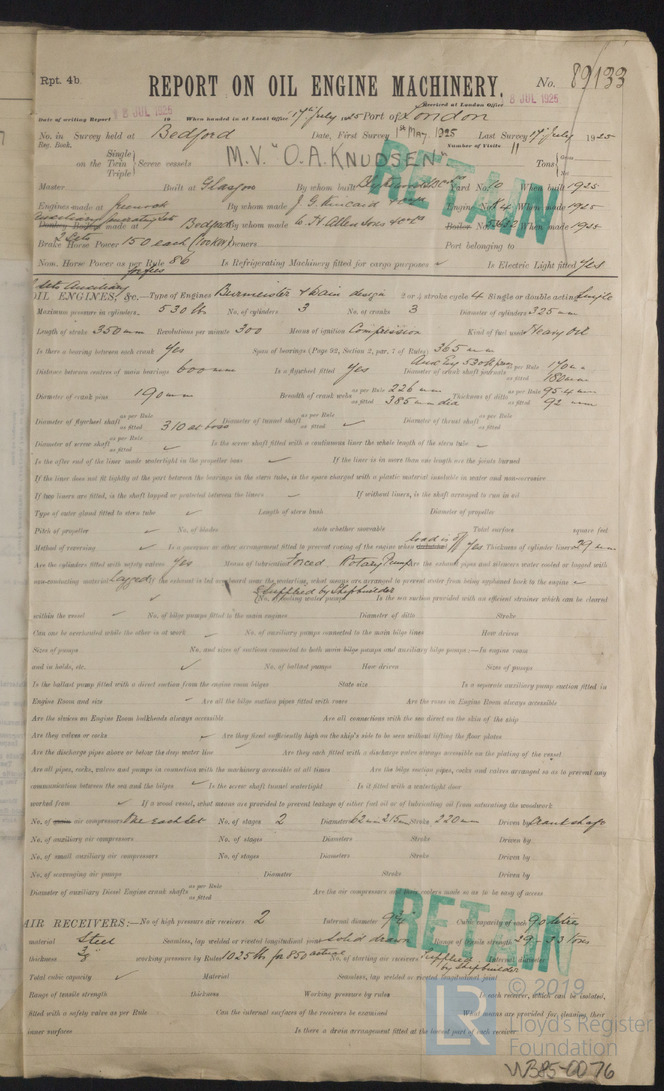 Rpt. 4b.
REPORT ON OIL ENGINE MACHINERY.
No. 89133
18 JUL 1925
Received at London Office 8 JUL 1925
Date of writing Report 19 When handed in at Local Office 17th July 1925 Port of London
No. in Reg. Book. Survey held at Bedford Date, First Survey 1st May. 1925 Last Survey 17th July 1925
Number of Visits 11
Single
on the Twin Screw vessels M.V. "O.A. KNUDSEN" Tons Gross
Triple Net
RETAIN
Master Built at Glasgow By whom built Yard No. 10 When built 1925
Engines made at Greenock By whom made J. G. Kincaid & Co Engine No. When made 1925
Auxiliary generating sets made at Bedford By whom made W. H. Allen Sons & Co Ld Boiler No. When made 1925
2 Sets
Brake Horse Power 150 each Owners Port belonging to
Nom. Horse Power as per Rule 86 Is Refrigerating Machinery fitted for cargo purposes Is Electric Light fitted Yes
OIL ENGINES, &c.—Type of Engines Burmeister & Wain design 2 or 4 stroke cycle 4 Single or double acting Single
Maximum pressure in cylinders 530 lbs No. of cylinders 3 No. of cranks 3 Diameter of cylinders 325 mm
Length of stroke 350 mm Revolutions per minute 300 Means of ignition Compression Kind of fuel used Heavy Oil
Is there a bearing between each crank Yes Span of bearings (Page 92, Section 2, par. 7 of Rules) 365 mm
Distance between centres of main bearings 600 mm Is a flywheel fitted Yes Diameter of crank shaft journals as per Rule 170 mm
as fitted 180 mm
Diameter of crank pins 190 mm Breadth of crank webs as per Rule 226 mm Thickness of ditto as per Rule 95.4 mm
as fitted 385 mm dia as fitted 92 mm
Diameter of flywheel shaft as per Rule Diameter of tunnel shaft as per Rule Diameter of thrust shaft as per Rule
as fitted 310 at boss as fitted as fitted
Diameter of screw shaft as per Rule Is the screw shaft fitted with a continuous liner the whole length of the stern tube
as fitted
Is the after end of the liner made watertight in the propeller boss If the liner is in more than one length are the joints burned
If the liner does not fit tightly at the part between the bearings in the stern tube, is the space charged with a plastic material insoluble in water and non-corrosive
If two liners are fitted, is the shaft lapped or protected between the liners If without liners, is the shaft arranged to run in oil
Type of outer gland fitted to stern tube Length of stern bush Diameter of propeller
Pitch of propeller No. of blades state whether moveable Total surface square feet
load is off
Method of reversing Is a governor or other arrangement fitted to prevent racing of the engine when Yes Thickness of cylinder liners 29 mm
Are the cylinders fitted with safety valves Yes Means of lubrication Forced Rotary Pump Are the exhaust pipes and silencers water cooled or lagged with
non-conducting material lagged If the exhaust is led overboard near the waterline, what means are arranged to prevent water from being syphoned back to the engine
Supplied by Shipbuilder
No. of cooling water pumps Is the sea suction provided with an efficient strainer which can be cleared
within the vessel No. of bilge pumps fitted to the main engines Diameter of ditto Stroke
Can one be overhauled while the other is at work No. of auxiliary pumps connected to the main bilge lines How driven
Sizes of pumps No. and sizes of suctions connected to both main bilge pumps and auxiliary bilge pumps:—In engine room
and in holds, etc. No. of ballast pumps How driven Sizes of pumps
Is the ballast pump fitted with a direct suction from the engine room bilges State size Is a separate auxiliary pump suction fitted in
Engine Room and size Are all the bilge suction pipes fitted with roses Are the roses in Engine Room always accessible
Are the sluices on Engine Room bulkheads always accessible Are all connections with the sea direct on the skin of the ship
Are they valves or cocks Are they fixed sufficiently high on the ship's side to be seen without lifting the floor plates
Are the discharge pipes above or below the deep water line Are they each fitted with a discharge valve always accessible on the plating of the vessel
Are all pipes, cocks, valves and pumps in connection with the machinery accessible at all times Are the bilge suction pipes, cocks and valves arranged so as to prevent any
communication between the sea and the bilges Is the screw shaft tunnel watertight Is it fitted with a watertight door
worked from If a wood vessel, what means are provided to prevent leakage of either fuel oil or of lubricating oil from saturating the woodwork
No. of air compressors One each set No. of stages 2 Diameters Stroke 220 mm Driven by Crankshaft
No. of auxiliary air compressors No. of stages Diameters Stroke Driven by
No. of small auxiliary air compressors No. of stages Diameters Stroke Driven by
No. of scavenging air pumps Diameter Stroke Driven by
Diameter of auxiliary Diesel Engine crank shafts as per Rule Are the air compressors and their coolers made so as to be easy of access
as fitted
RETAIN
AIR RECEIVERS:—No. of high pressure air receivers 2 Internal diameter 9¼" Cubic capacity of each 90 litres
material Steel Seamless, lap welded or riveted longitudinal joint Solid drawn Range of tensile strength 29 - 33 tons
thickness working pressure by Rules 1025 lbs for 850 actual No. of starting air receivers Supplied by Shipbuilder Internal diameter
Total cubic capacity Material Seamless, lap welded or riveted longitudinal joint
Range of tensile strength thickness Working pressure by rules Is each receiver, which can be isolated,
fitted with a safety valve as per Rule Can the internal surfaces of the receivers be examined What means are provided for cleaning their
inner surfaces Is there a drain arrangement fitted at the lowest part of each receiver
© 2019
LR
Lloyd's Register
Foundation
WB85-0076